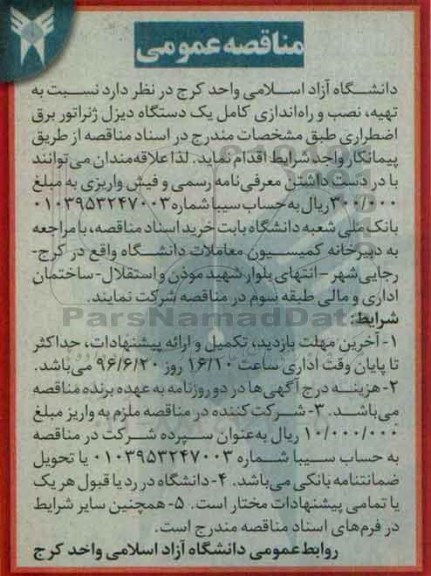 مناقصه عمومی
دانشگاه آزاد اسلامی واحد کرج در نظر دارد نسبت به
تهیه، نصب و راه‌اندازی کامل یک دستگاه دیزل ژنراتور برق
اضطراری طبق مشخصات مندرج در اسناد مناقصه از طریق
پیمانکار واجد شرایط اقدام نماید. لذا علاقه‌مندان می‌توانند
با در دست داشتن معرفی‌نامه رسمی و فیش واریزی به مبلغ
۳۰۰/۰۰۰ ریال به حساب سیبا شماره ۰۱۰۳۹۵۳۲۴۷۰۰۳
بانک ملی شعبه دانشگاه بابت خرید اسناد مناقصه، با مراجعه
به دبیرخانه کمیسیون معاملات دانشگاه واقع در کرج-
رجایی شهر – انتهای بلوار شهید موذن و استقلال- ساختمان
اداری و مالی طبقه سوم در مناقصه شرکت نمایند.
ParsNamadData
شرایط:
۱- آخرین مهلت بازدید، تکمیل و ارائه پیشنهادات، حداکثر
تا پایان وقت اداری ساعت ۱۶/۱۰ روز ۹۶/۶/۲۰ می‌باشد.
۲- هزینه درج آگهی‌ها در دو روزنامه به عهده برنده مناقصه
می‌باشد. ۳- شرکت کننده در مناقصه ملزم به واریز مبلغ
۱۰/۰۰۰/۰۰۰ ریال به‌عنوان سپرده شرکت در مناقصه
به حساب سیبا شماره ۰۱۰۳۹۵۳۲۴۷۰۰۳ یا تحویل
ضمانتنامه بانکی می‌باشد. ۴- دانشگاه در رد یا قبول هر یک
یا تمامی پیشنهادات مختار است. ۵- همچنین سایر شرایط
در فرم‌های اسناد مناقصه مندرج است.
روابط عمومی دانشگاه آزاد اسلامی واحد کرج